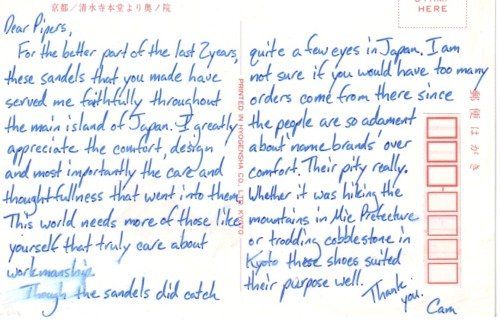 京都／清水寺本堂より奥ノ院
HERE
Dear Pipers,
For the better part of the last 2 years,
these sandels that you made have
served me faithfully throughout
the main island of Japan. I greatly
appreciate the comfort, design
and most importantly the care and
thoughtfullness that went into them.
This world needs more of those like
yourself that truly care about
workmanship.
Though the sandels did catch
PRINTED IN HYOGENSHA CO., LTD. KYOTO
quite a few eyes in Japan. I am
not sure if you would have too many
orders come from there since
the people are so adament
about 'name brands' over
comfort. Their pity really.
Whether it was hiking the
mountains in Mie Prefecture
or trodding cobblestone in
Kyoto these shoes suited
their purpose well.
Thank
you.
Cam
郵便はがき